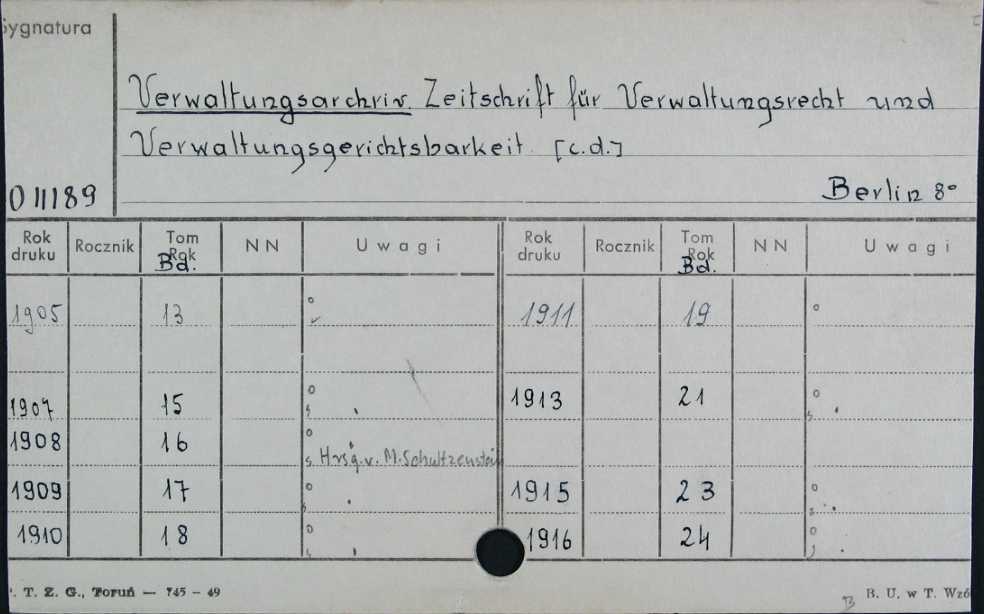 Sygnatura
Verwaltungsarchiv. Zeitschrift für Verwaltungsrecht und
Verwaltungsgerichtsbarkeit [c.d.]
011189
Berlin 8°
Rok druku Rocznik Tom Rok Bd. NN Uwagi Rok druku Rocznik Tom Rok Bd. NN Uwagi
1905 13 1911 19
1907 15 1913 21
1908 16
Hrsg. v. M. Schultzenstein
1909 17 1915 23
1910 18 1916 24
T. Z. G., Toruń — 745 – 49
B. U. w T. Wzó